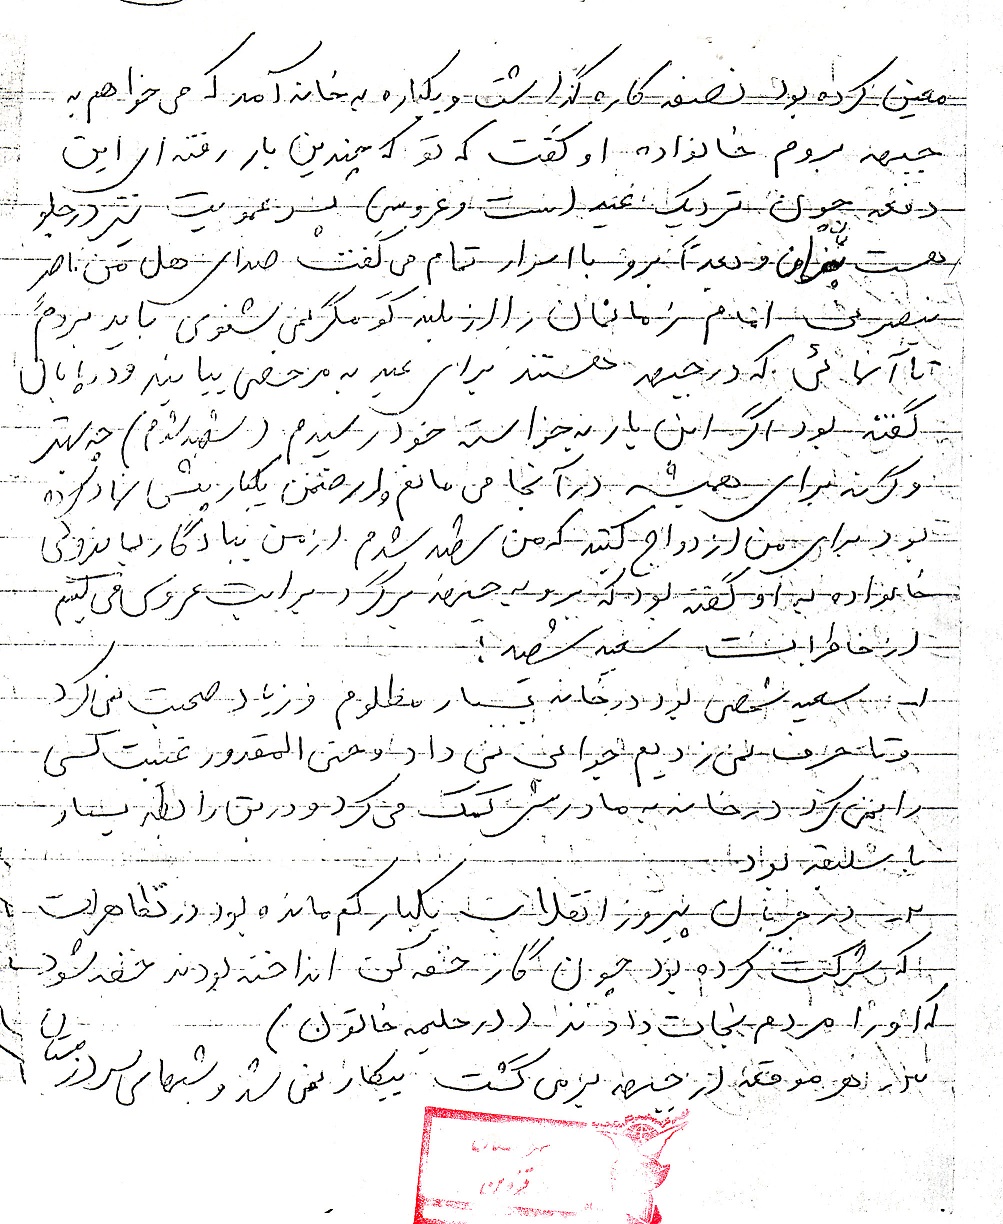 معین کرده بود نصفه کاره گذاشت و یکباره به خانه آمد که می خواهم به
جبهه بروم خانواده او گفت که تو که چندین بار رفته ای این
دفعه چون نزدیک عید است و عروسی پسر عمویت نیز در جلو
هست و بعداً برو با اسرار تمام می گفت صدای هل من ناصر
ینصرنی امام زمانمان را از بلند گو مگر نمی شنوی باید بروم
تا آنهائی که در جبهه هستند برای عید به مرخصی بیایند و
گفته بود اگر این بار به خواسته خود رسیدم (شهید شدم) چه بهتر
وگرنه برای همیشه در آنجا می مانم در ضمن یکبار پیش نهاد کرده
بود برای من ازدواج کنید که من شهید شدم از من یادگار بماند ولی
خانواده به او گفته بود که برو به جبهه برگرد برایت عروسی می کنیم
از خاطرات سعید شهید :
۱- سعید شخصی بود در خانه بسیار مظلوم و زیاد صحبت نمی کرد
و تا حرف نمی زدیم جوابی نمی داد و حتی المقدور غیبت کسی
را نمی کرد در خانه به مادرش کمک می کرد و در این رابطه بسیار
با سلیقه بود
۲- در جریان پیروز انقلاب یکبار کم مانده بود در تظاهرات
که شرکت کرده بود چون گاز خفه کن انداخته بودند خفه شود
که او را مردم نجات دادند (در حلیمه خاتون)
۳- هر موقعه از جبهه بر می گشت بیکار نمی شد و شبهای سرد زمستان